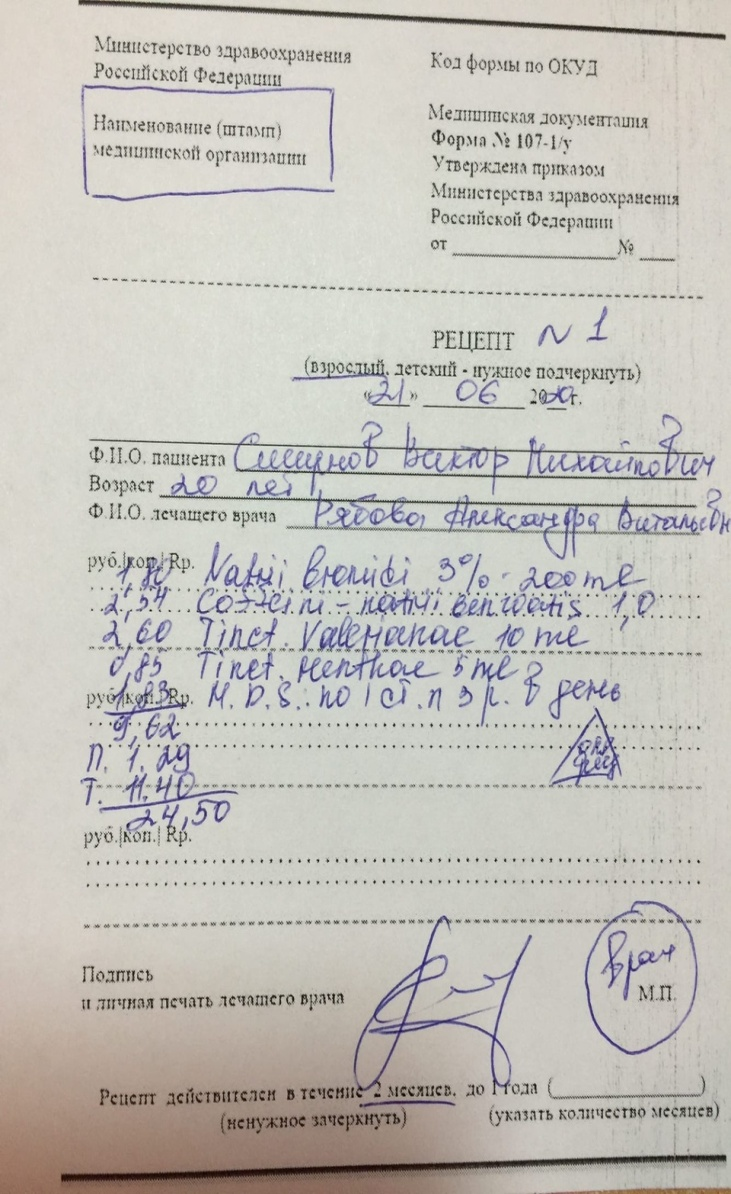 Министерство здравоохранения
Российской Федерации
Наименование (штамп)
медицинской организации
Код формы по ОКУД
Медицинская документация
Форма № 107-1/у
Утверждена приказом
Министерства здравоохранения
Российской Федерации
от № 
РЕЦЕПТ N 1
(взрослый, детский - нужное подчеркнуть)
«21» 06 2020г.
Ф.И.О. пациента Виктор Михайлович
Возраст 20 лет
Ф.И.О. лечащего врача Рябова Александра Витальевн
руб.|коп.| Rp.
1,80 Natrii bromidi 3% - 200 ml
2,54 Coffeini - natrii benzoatis 1,0
2,60 Tinct. Valerianae 10 ml
0,85 Tinct. Menthae 5 ml
руб.|коп.| Rp.
1,83 M. D. S. по 1 ст. л 3 р. в день
9,62
П. 1. 29
Т. 11.40
24,50
руб.|коп.| Rp.
Подпись
и личная печать лечащего врача
Врач
М.П.
Рецепт действителен в течение 2 месяцев, до 1 года ( )
(ненужное зачеркнуть) (указать количество месяцев)